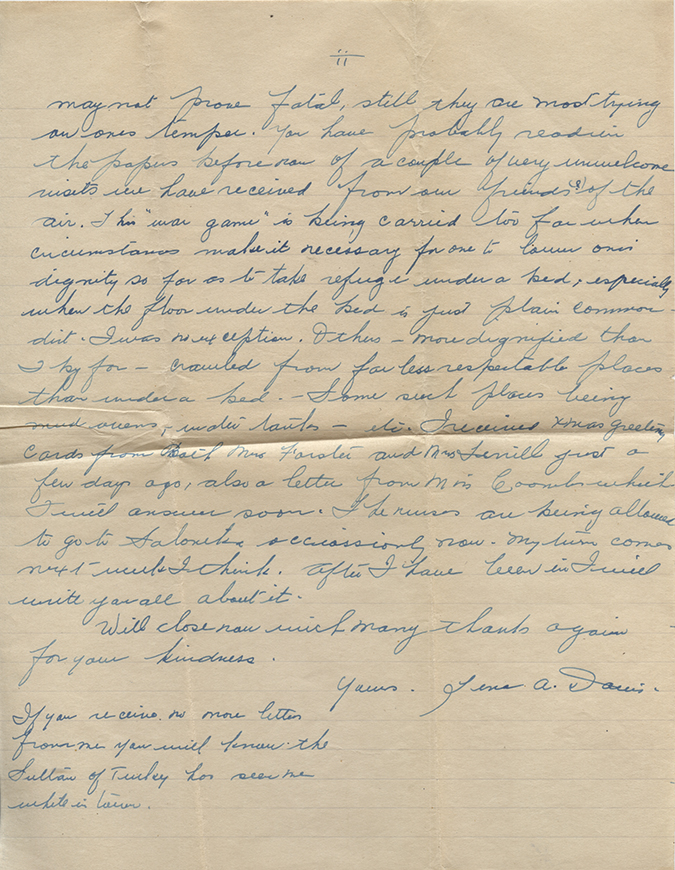 ii
may not prove fatal, still they are most trying
on ones temper. You have probably read in
the papers before now of a couple of very unwelcome
visits we have received from our friends of the
air. This "war game" is being carried too far when
circumstances make it necessary for one to lower ones
dignity so far as to take refuge under a bed, especially
when the floor under the bed is just plain common
dirt. I was no exception. Others - more dignified than
I by far - crawled from far less respectable places
than under a bed. - Some such places being
mud ovens, under tanks - etc. I received xmas greeting
cards from Both Mrs Forster and Mrs just a
few days ago, also a letter from Miss Coombs which
I will answer soon. The nurses are being allowed
to go to Salonika occassionly now. My turn comes
next week I think. After I have been in I will
write you all about it.
Will close now with many thanks again
for your kindness.
Yours. Lena A. Davis.
If you receive no more letters
from me you will know the
Sultan of Turkey has seen me
while in town.